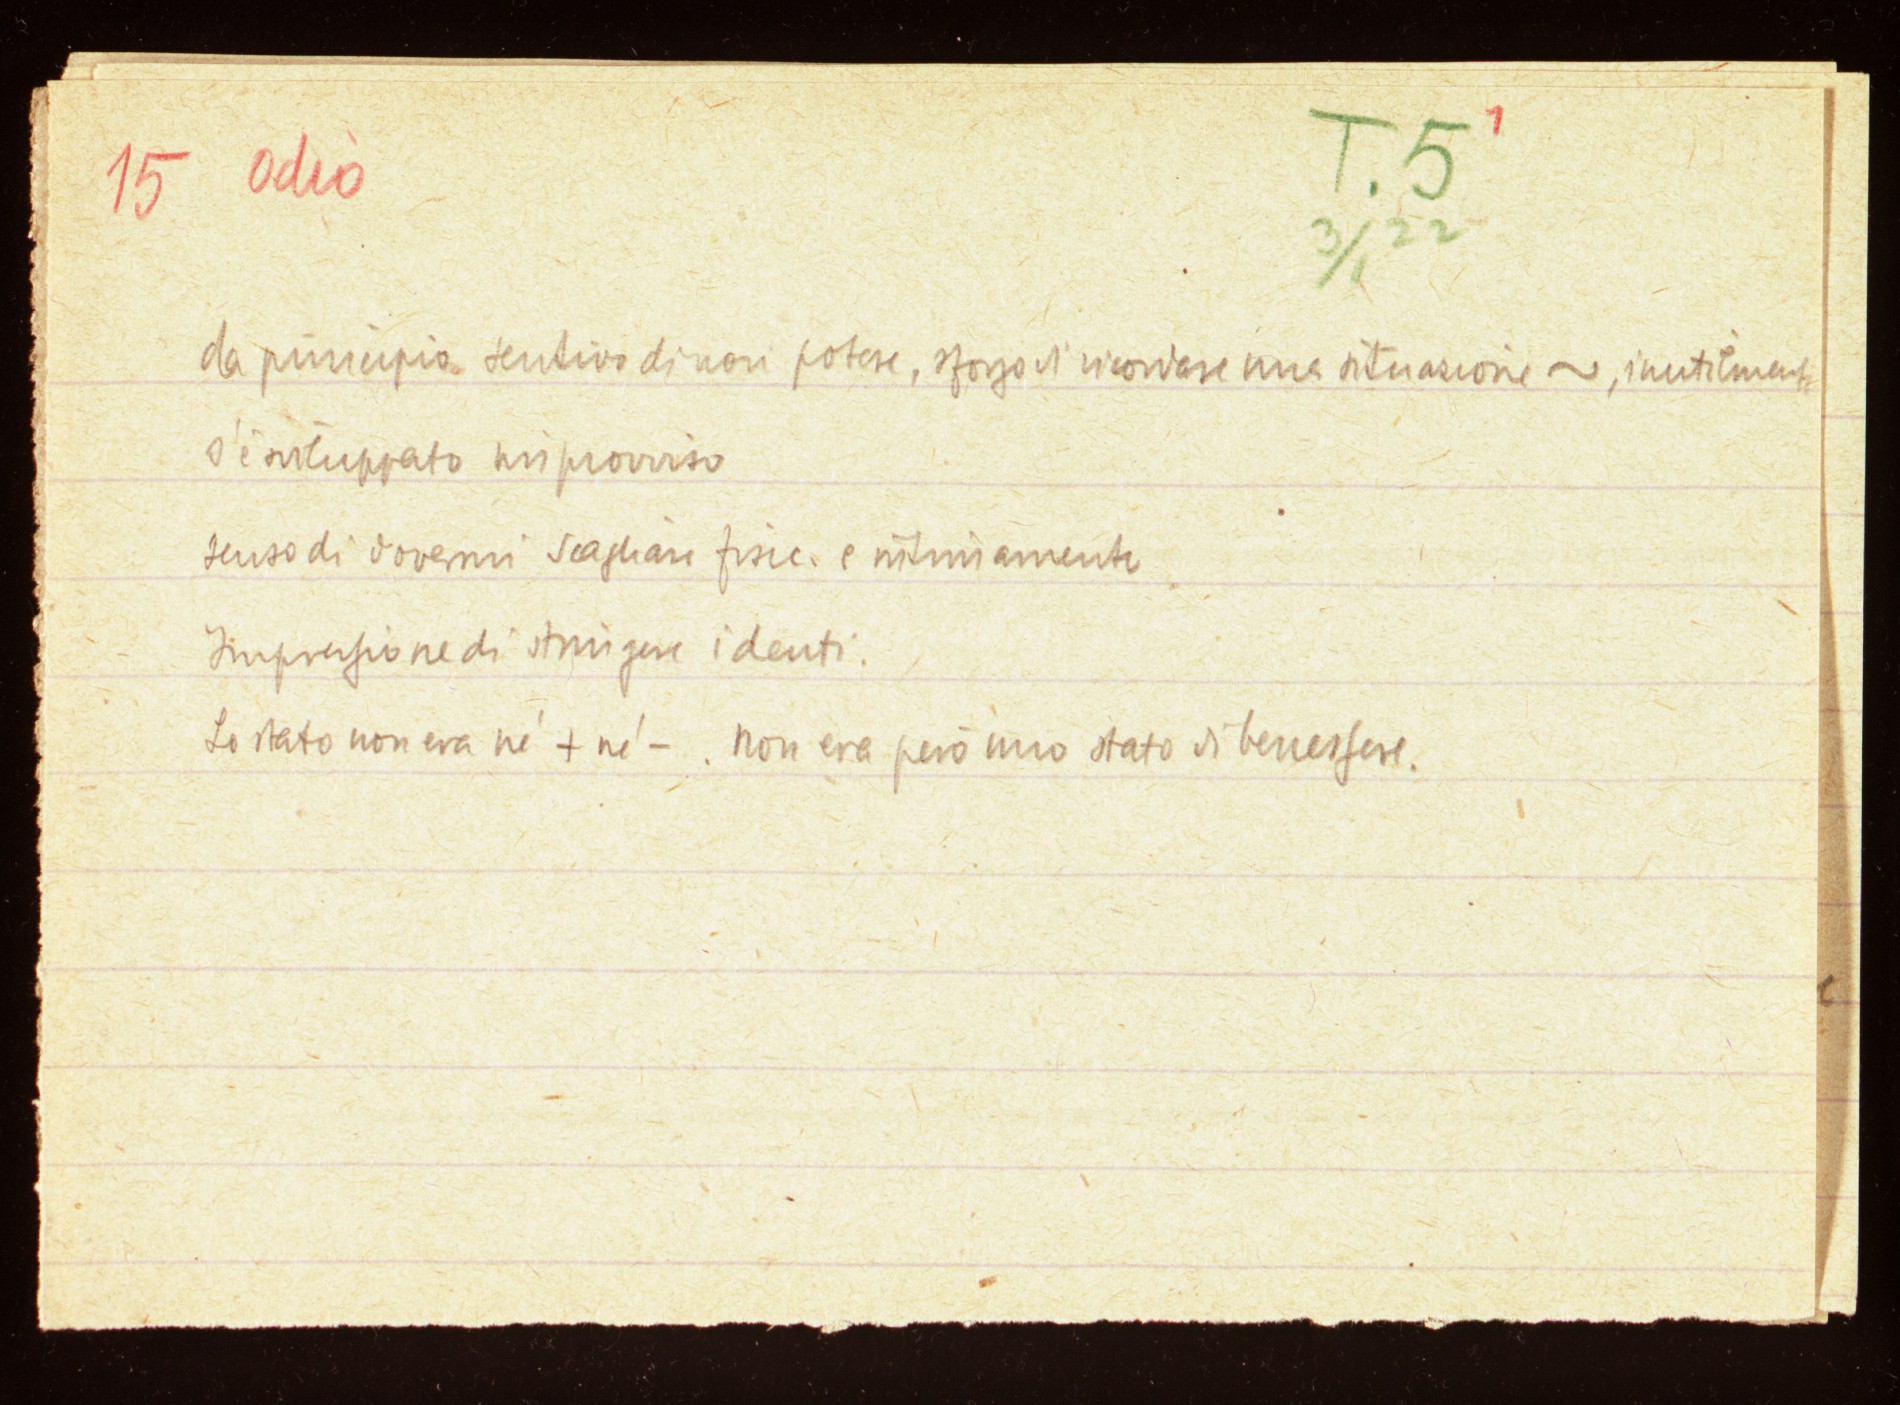 15 odio
T. 5 1
3/1 22
da principio sentivo di non potere, sforzo di ricordare una situazione ~, inutilmente
s'è sviluppato improvviso
senso di dovermi scagliare fisic. e intimamente
Impressione di stringere i denti.
Lo stato non era né + né - . Non era però uno stato di benessere.